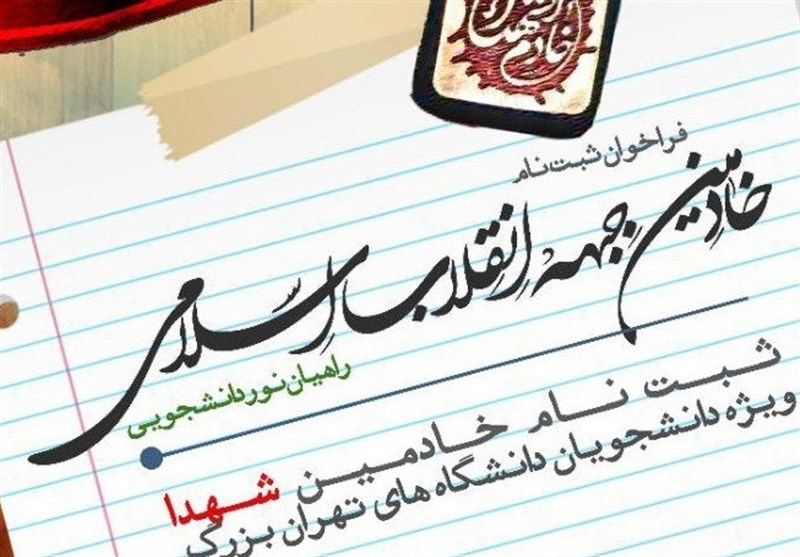 خادم
فراخوان ثبت نام
خادمین جبهه انقلاب اسلامی
راهیان نور دانشجویی
ثبت نام خادمین شهدا
ویژه دانشجویان دانشگاه های تهران بزرگ